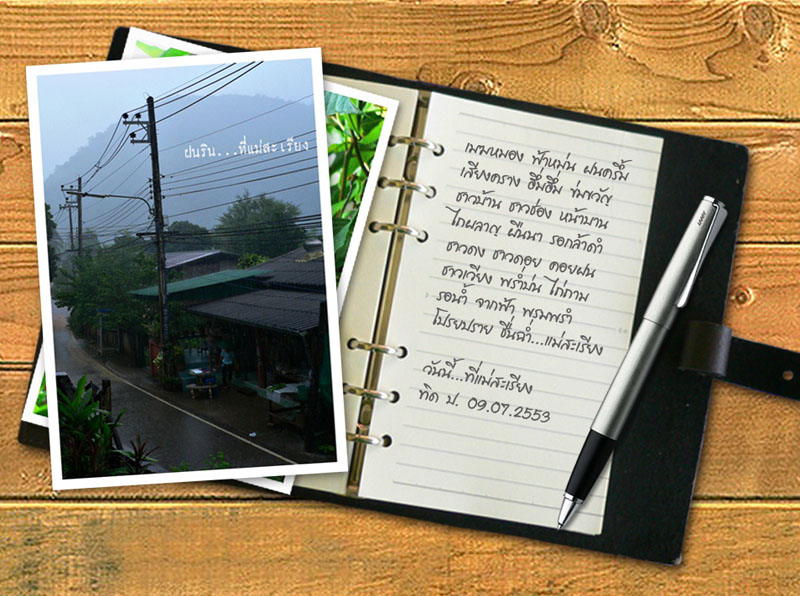 ฝนริน...ที่แม่สะเรียง
เมฆหมอง ฟ้าหม่น ฝนครึ้ม
เสียงคราง ฮึ่มฮึ่ม ข่มขวัญ
ชาวบ้าน ชาวช่อง หน้าบาน
ไถผลาญ ผืนนา รอกล้าดำ
ชาวดง ชาวดอย คอยฝน
ชาวเวียง พร่ำบ่น ไถ่ถาม
รอน้ำ จากฟ้า พรมพรำ
โปรยปราย ชื่นฉ่ำ...แม่สะเรียง
วันนี้...ที่แม่สะเรียง
ทิด ป. 09.07.2553
LAMY